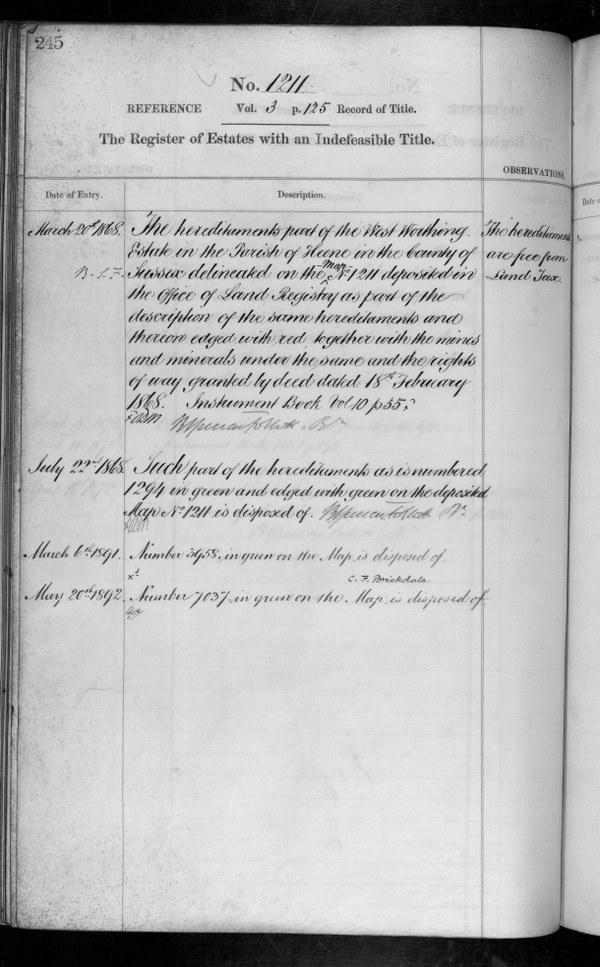 245
No. 1211.
REFERENCE Vol. 3 p. 125 Record of Title.
The Register of Estates with an Indefeasible Title.
OBSERVATIONS.
Date of Entry. Description.
March 20th 1868. The hereditaments part of the West Worthing
Estate in the Parish of Heene in the County of
B. S. F. Sussex delineated on the Map No. 1211 deposited in
the Office of Land Registry as part of the
description of the same hereditaments and
thereon edged with red, together with the mines
and minerals under the same and the rights
of way granted by deed dated 18th February
1868. Instrument Book Vol 10 p 55.
The hereditaments
are free from
Land Tax.
July 22nd 1868. Such part of the hereditaments as is numbered
1294 in green and edged with green on the deposited
Map No. 1211 is disposed of.
March 6th 1891. Number 3958, in green on the Map, is disposed of
C. F. Brickdale
May 20th 1892. Number 7037, in green on the Map, is disposed of
Da